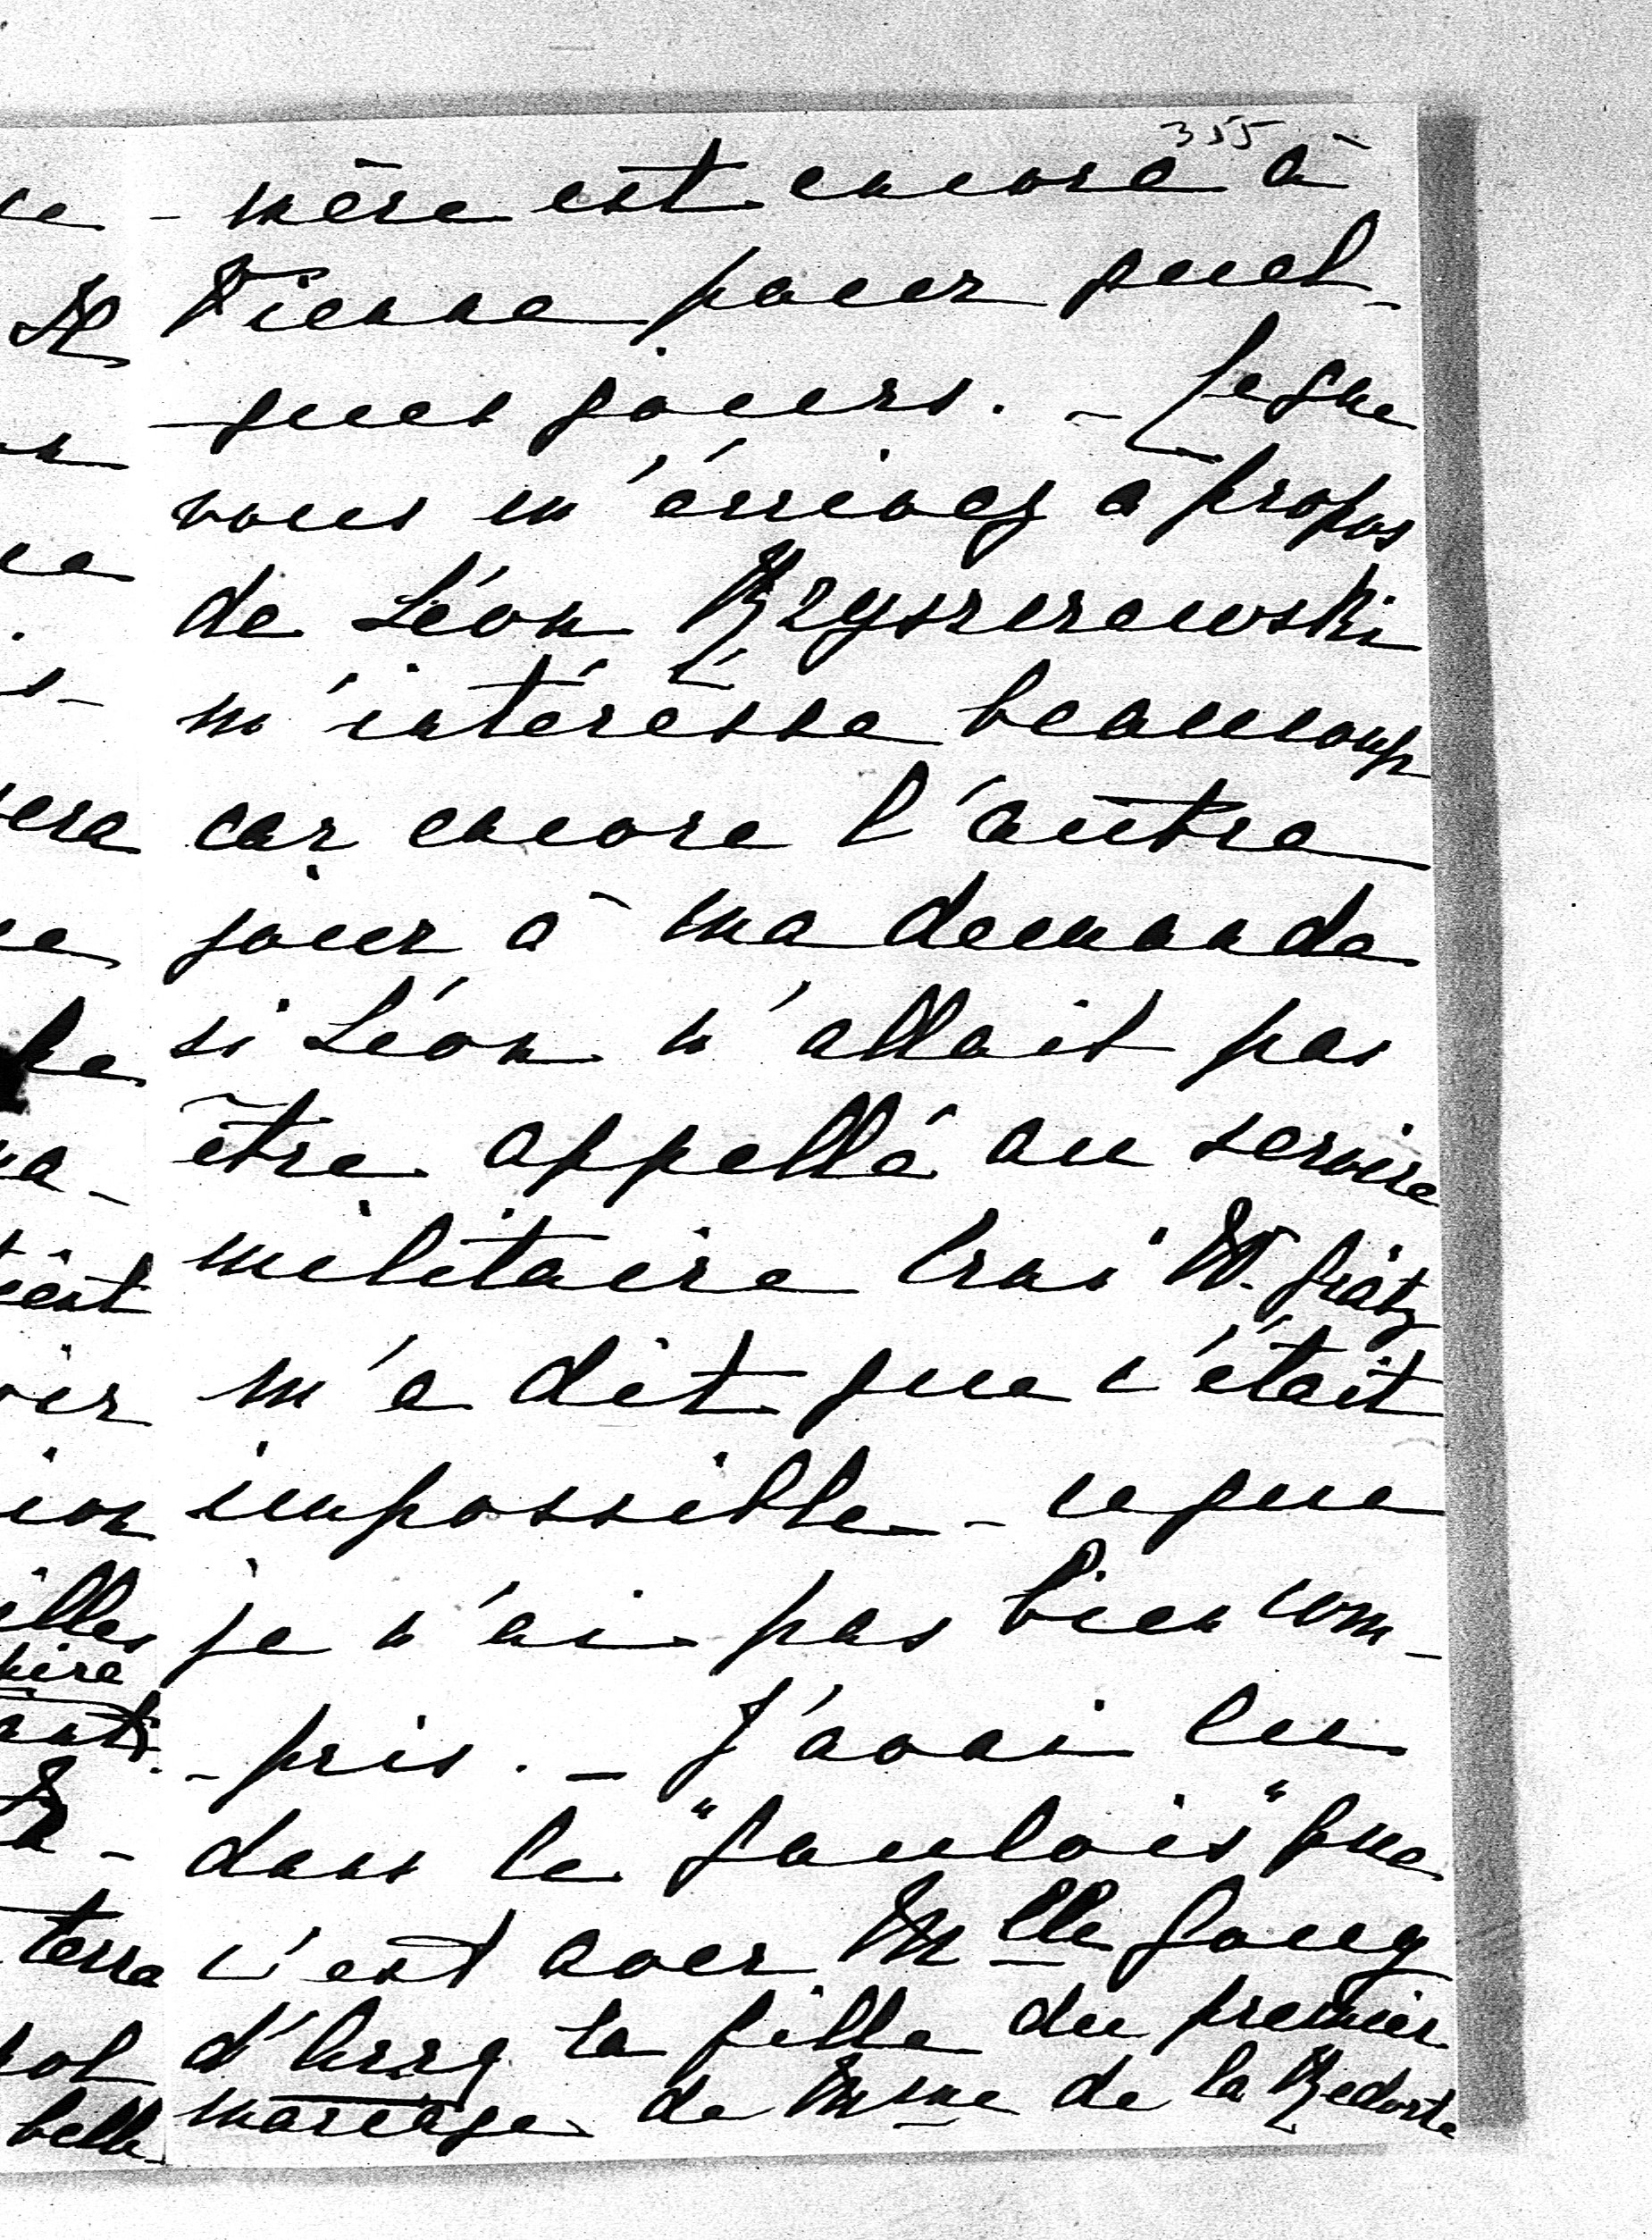 355
- mère est encore à
Vienne pour quel-
-ques jours. - Ce que
vous m'écrivez à propos
de Léon Rzyszczewski
m'intéresse beaucoup
car encore l'autre
jour à ma demande
si Léon n'allait pas
être appellé au service
militaire
m'a dit que c'était
impossible - ce que
je n'ai pas bien com-
- pris. - J'avai lu
dans le "Gaulois" que
c'est avec Mlle
la fille du premier
mariage de Mme de la Redorte
terre
belle